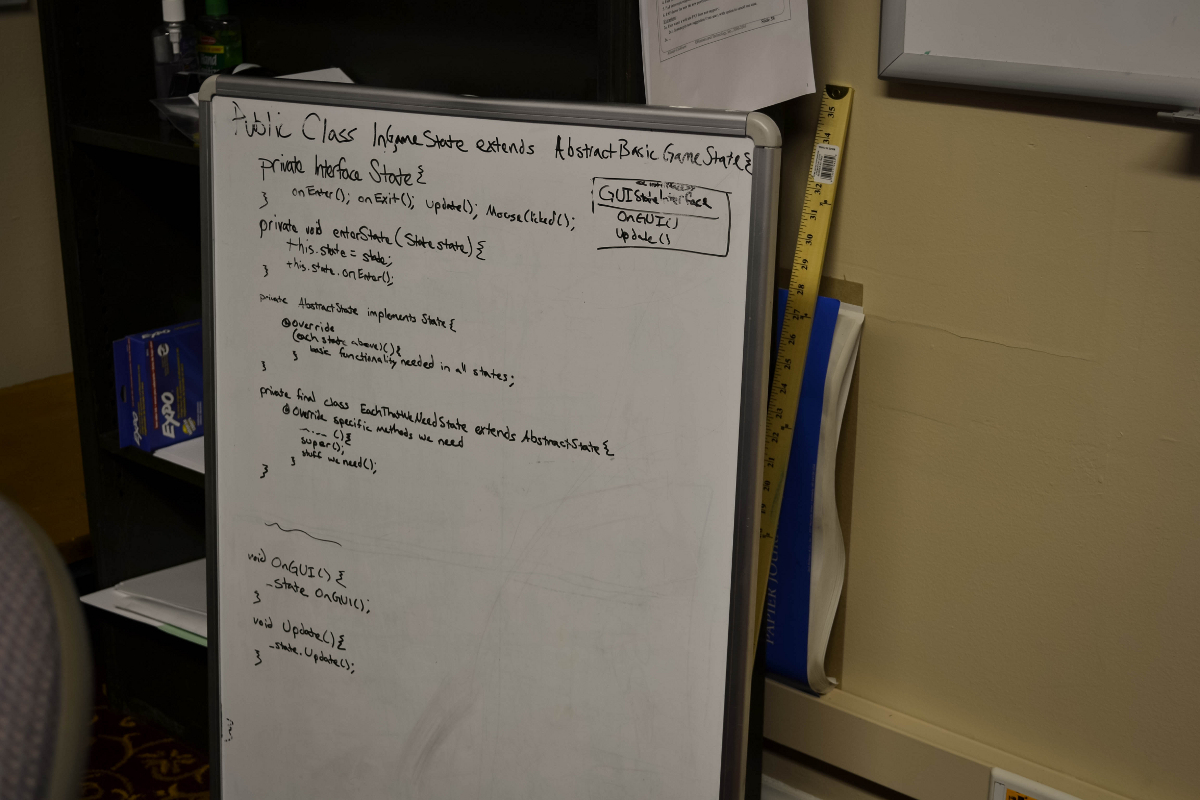 Public Class InGameState extends AbstractBasicGameState {
private Interface State {
onEnter(); onExit(); update(); MouseClicked();
}
private void enterState(State state) {
this.state = state;
this.state.onEnter();
}
private AbstractState implements State {
@Override
(each state above)() {
basic functionality needed in all states;
}
}
private final class EachThatWeNeedState extends AbstractState {
@Override specific methods we need
() {
super();
stuff we need();
}
}
void OnGUI() {
_state OnGUI();
}
void Update() {
_state.Update();
}
GUIStateInterface
OnGUI()
Update()
EXPO
EXPO
35
34
32
31
29
28
27
26
25
24
23
22
21